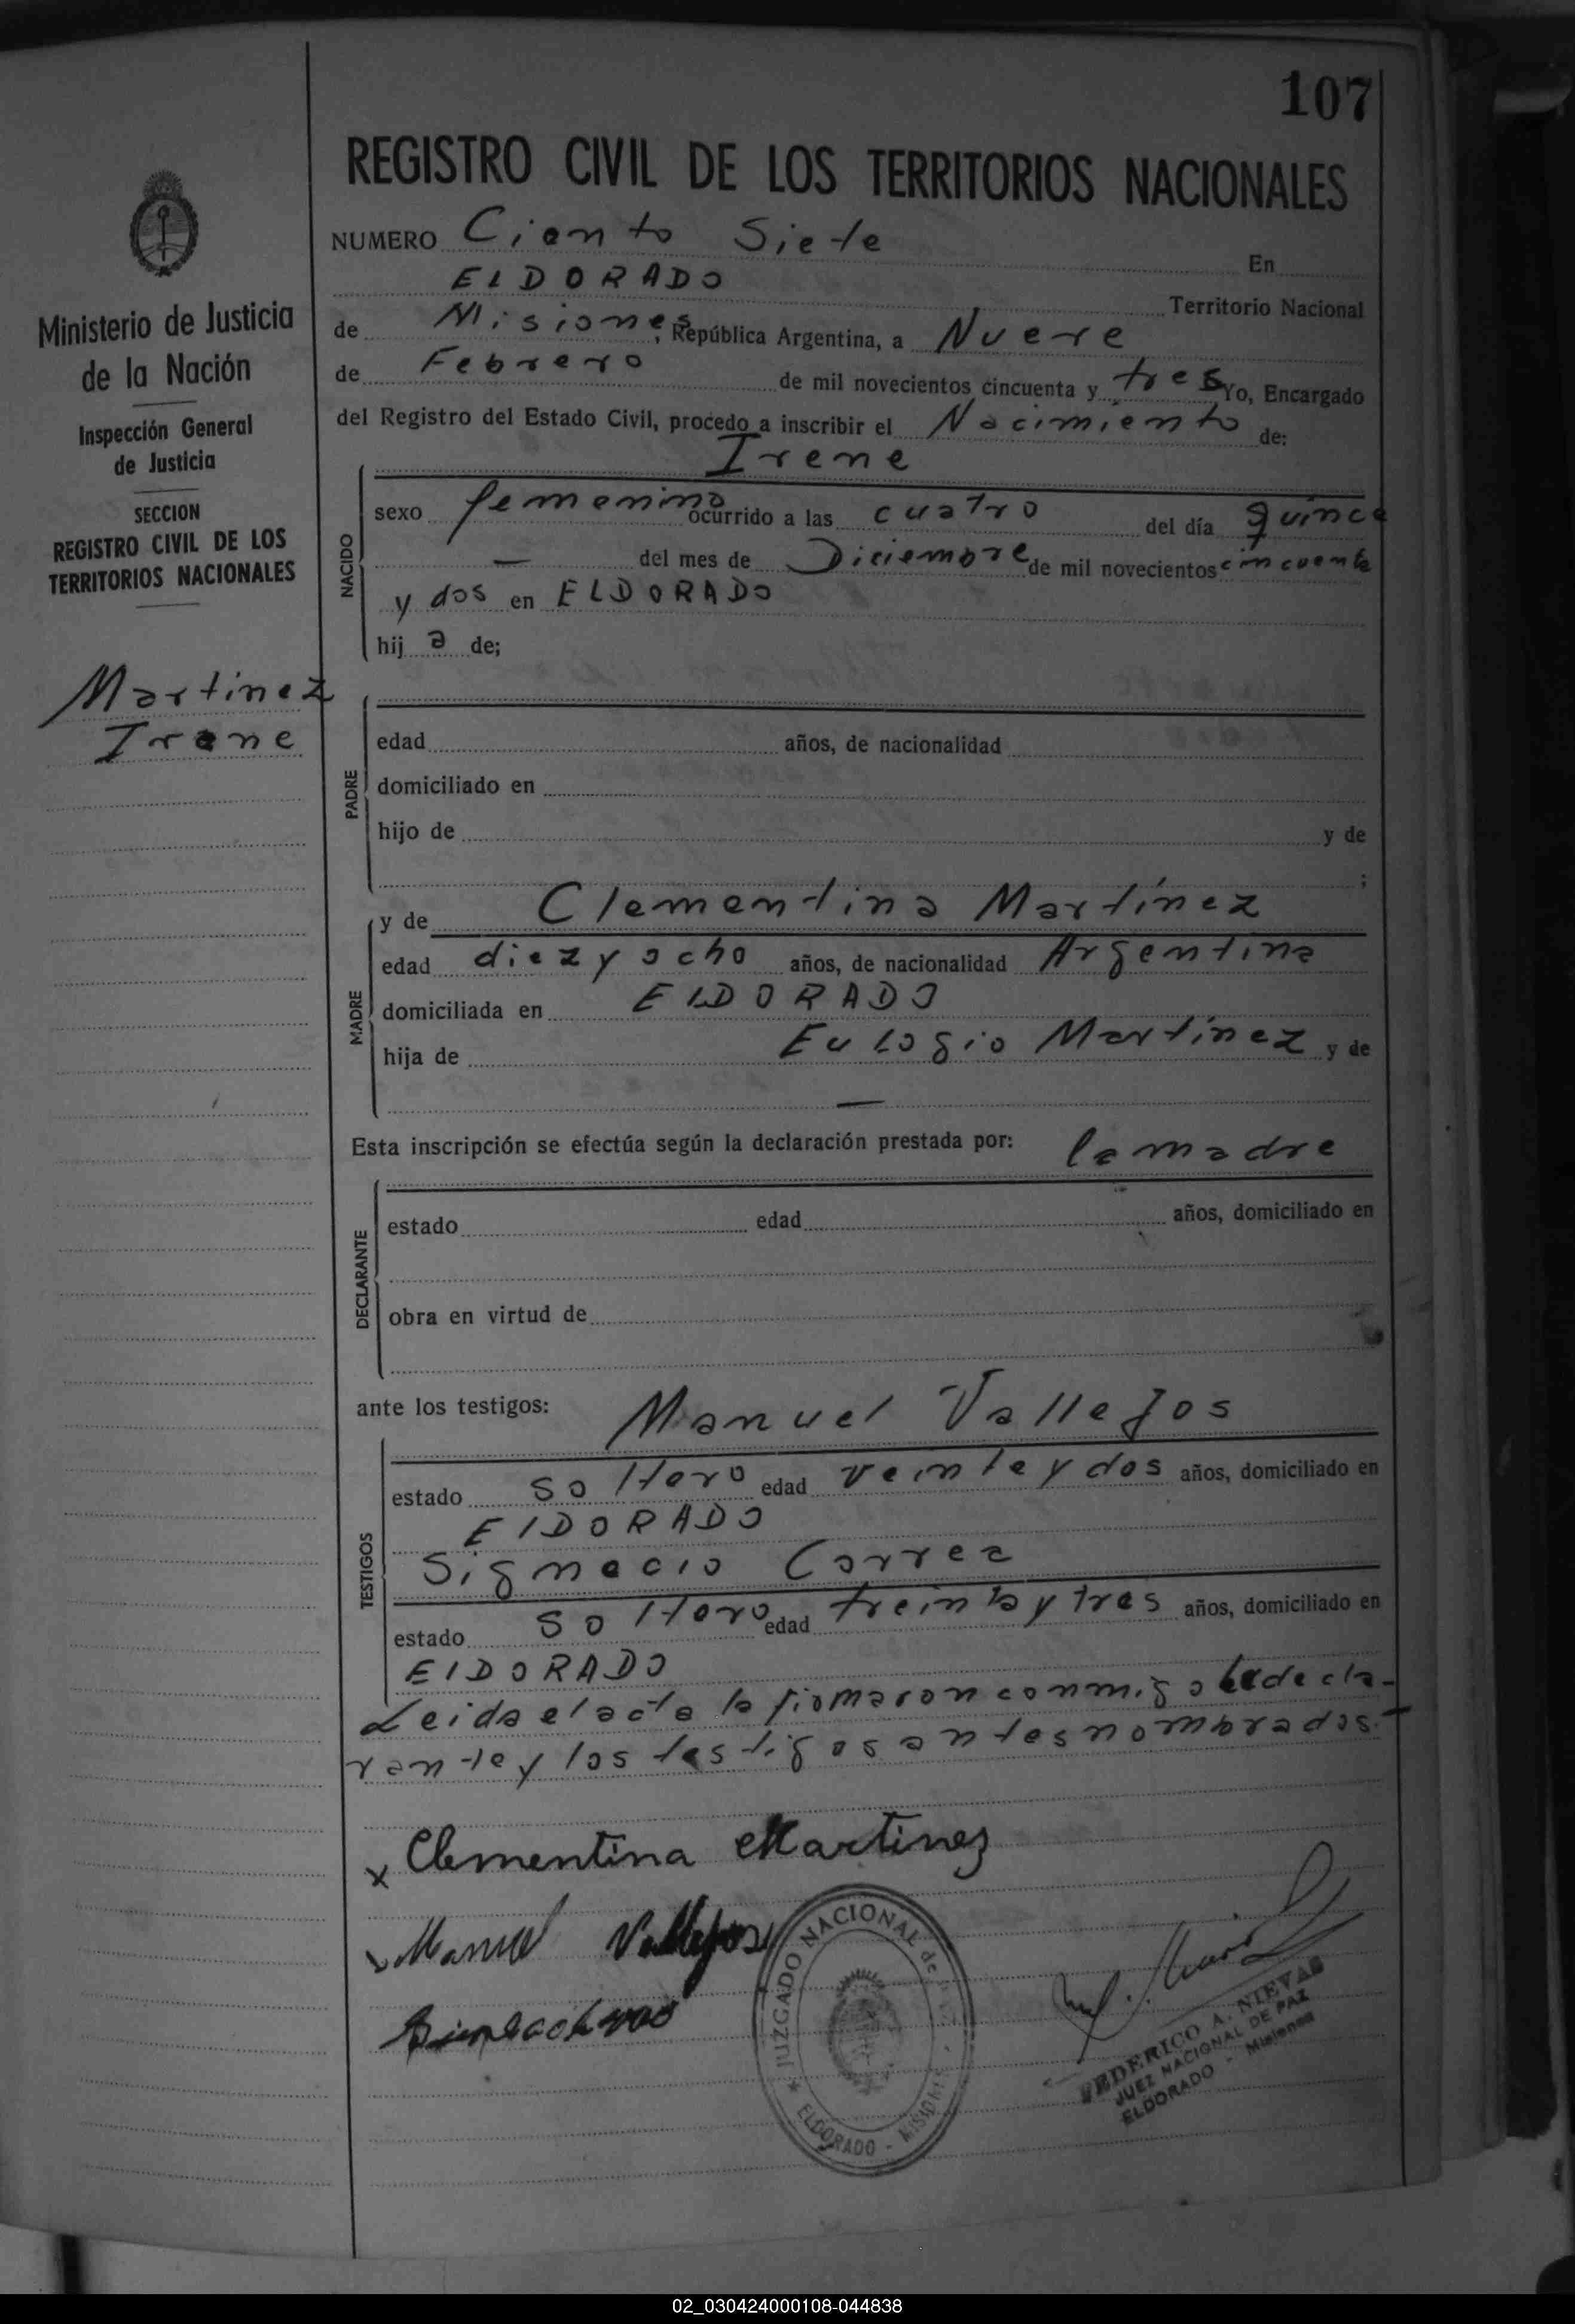 107
REGISTRO CIVIL DE LOS TERRITORIOS NACIONALES
NUMERO Ciento Siete
En
ELDORADO
Territorio Nacional
de Misiones, República Argentina, a Nueve
de Febrero de mil novecientos cincuenta y tres Yo, Encargado
del Registro del Estado Civil, procedo a inscribir el Nacimiento de:
Irene
NACIDO
sexo femenino ocurrido a las cuatro del día quince
— del mes de Diciembre de mil novecientos cincuenta
y dos en ELDORADO
hij a de;
Ministerio de Justicia
de la Nación
Inspección General
de Justicia
SECCION
REGISTRO CIVIL DE LOS
TERRITORIOS NACIONALES
Martinez
Irene
PADRE
edad años, de nacionalidad
domiciliado en
hijo de y de
;
MADRE
y de Clementina Martínez
edad diez y ocho años, de nacionalidad Argentina
domiciliada en ELDORADO
hija de Eulogio Martínez y de
—
Esta inscripción se efectúa según la declaración prestada por: la madre
DECLARANTE
estado edad años, domiciliado en
obra en virtud de
ante los testigos: Manuel Vallejos
TESTIGOS
estado soltero edad veinte y dos años, domiciliado en
ElDORADO
Signacio Correa
estado soltero edad treinta y tres años, domiciliado en
ElDORADO
Leida el acta la firmaron conmigo la decla-
rante y los testigos antes nombrados.-
x Clementina Martinez
Manuel Vallejos
JUZGADO NACIONAL de PAZ
ELDORADO - MISIONES
FEDERICO A. NIEVAS
JUEZ NACIONAL DE PAZ
ELDORADO - Misiones
02_030424000108-044838